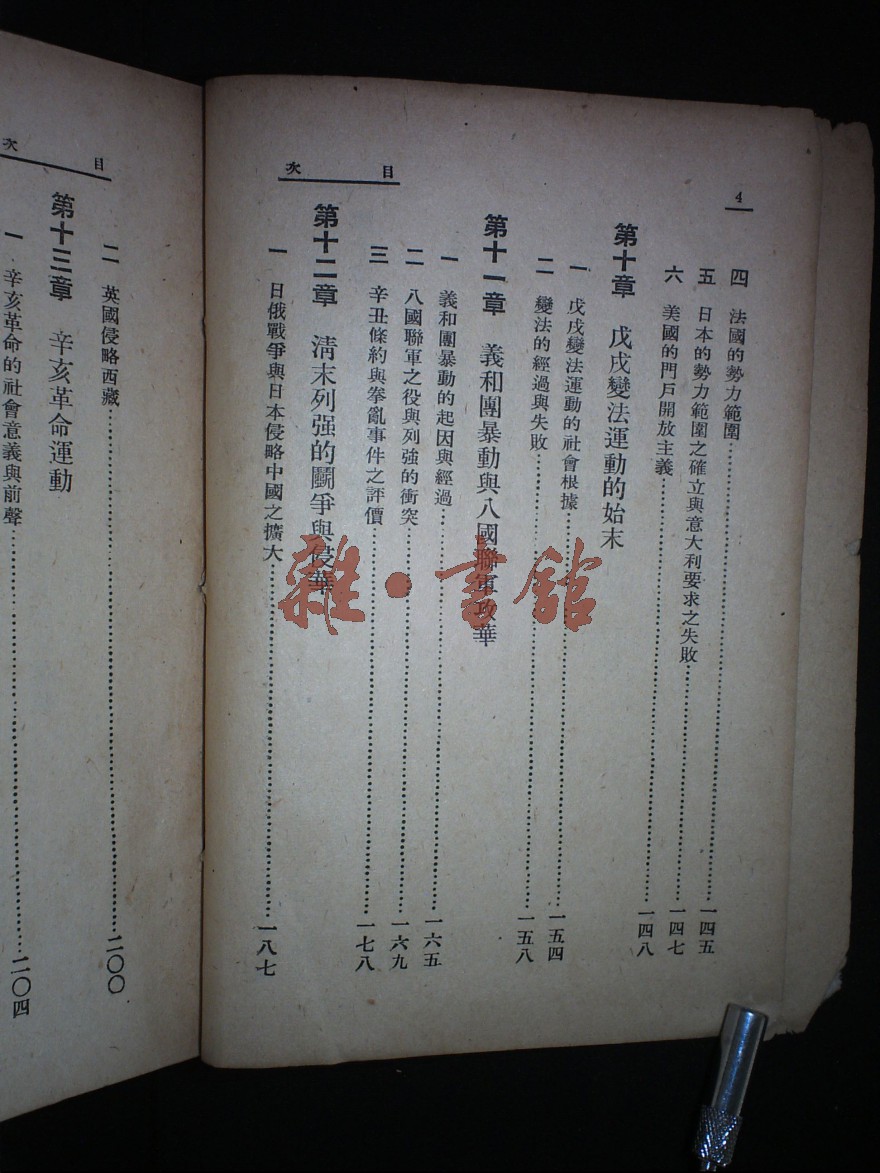 4
目次
四 法國的勢力範圍……一四五
五 日本的勢力範圍之確立與意大利要求之失敗……一四七
六 美國的門戶開放主義……一四八
第十章 戊戌變法運動的始末
一 戊戌變法運動的社會根據……一五四
二 變法的經過與失敗……一五八
第十一章 義和團暴動與八國聯軍攻華
一 義和團暴動的起因與經過……一六五
二 八國聯軍之役與列強的衝突……一六九
三 辛丑條約與拳亂事件之評價……一七八
第十二章 清末列强的鬭爭與侵華
一 日俄戰爭與日本侵略中國之擴大……一八七
目次
二 英國侵略西藏……二〇〇
第十三章 辛亥革命運動
一 辛亥革命的社會意義與前聲……二〇四
雜·書館